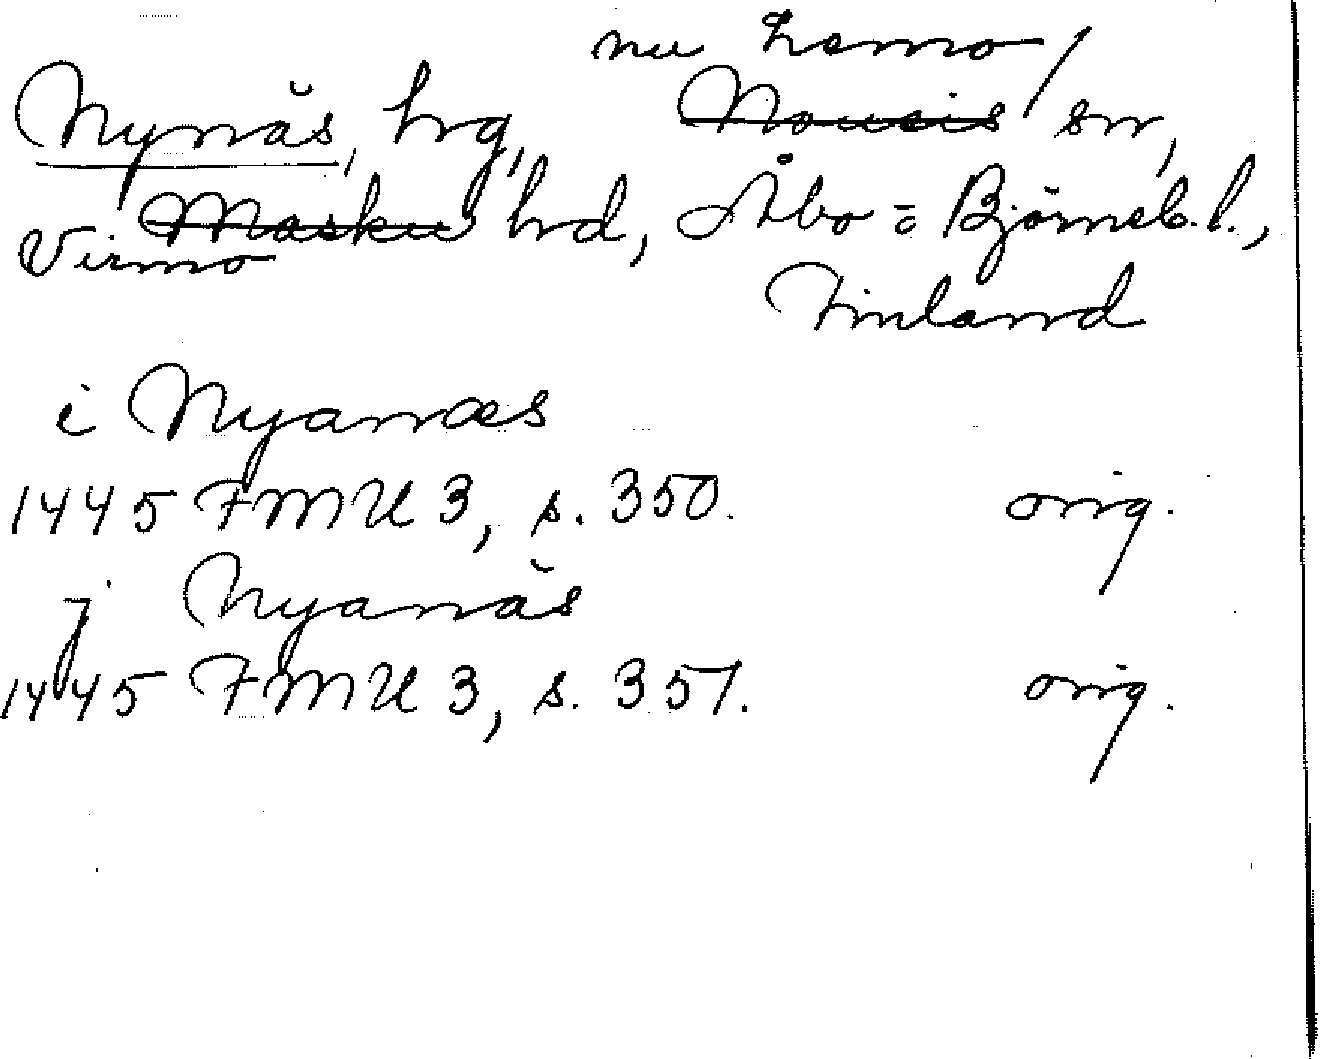 nu Lemo/
Nynäs, hrg, Nousis sn,
Virmo Masku hrd, Åbo = Björneb. l.,
Finland
i Nyanæs
1445 FMU 3, s. 350. orig.
j Nyanäs
1445 FMU 3, s. 351. orig.